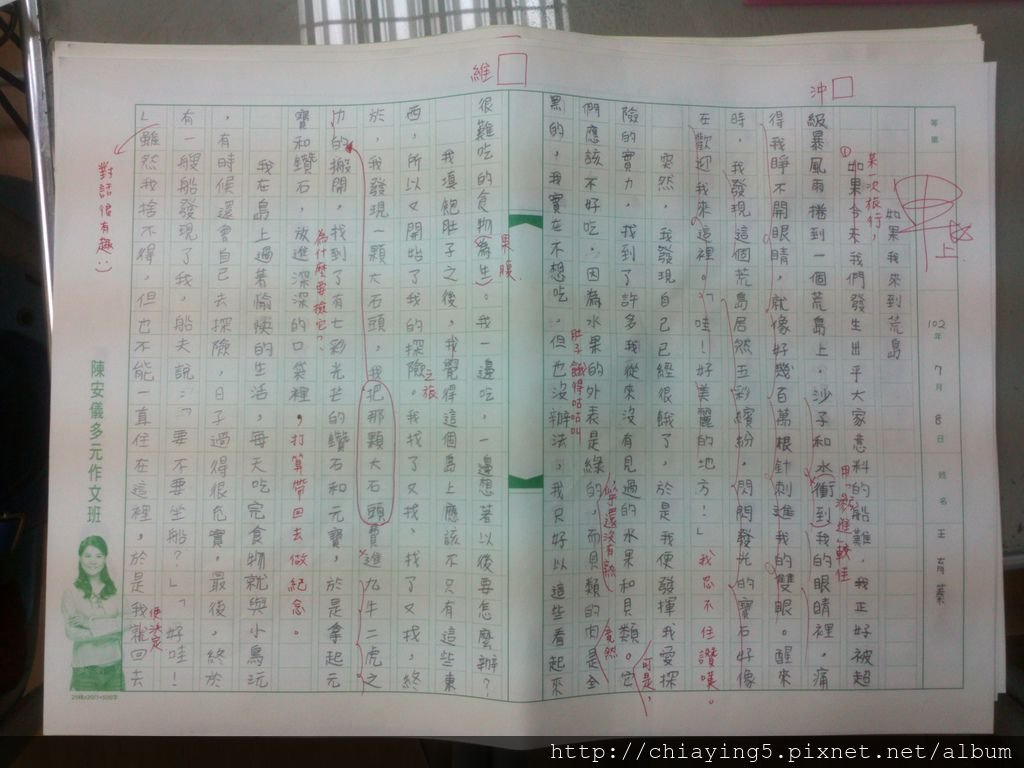 如果我來到荒島
如果今天我們發生出乎大家意料的船難，我正好被超
級暴風雨捲到一個荒島上，沙子和水衝到我的眼睛裡，痛
得我睜不開眼睛，就像好幾百萬根針刺進我的雙眼。醒來
時，我發現這個荒島居然五彩繽紛，閃閃發光的寶石好像
在歡迎我來這裡。「哇！好美麗的地方！」我忍不住讚嘆。
突然，我發現自己已經很餓了，於是我便發揮我愛探
險的實力，找到了許多我從來沒有見過的水果和貝類。它
們應該不好吃，因為水果的外表是綠的，而貝類的肉是全
黑的，我實在不想吃，但也沒辦法，我只好以這些看起來
很難吃的食物為生。我一邊吃，一邊想著以後要怎麼辦？
我填飽肚子之後，我覺得這個島上應該不只有這些東
西，所以又開始了我的探險。我找了又找，找了又找，終
於，我發現一顆大石頭，我把那顆大石頭費進九牛二虎之
力的搬開，找到了有七彩光芒的鑽石和元寶，於是拿起元
寶和鑽石，放進深深的口袋裡，打算帶回去做紀念。
我在島上過著愉快的生活，每天吃完食物就與小鳥玩
，有時候還會自己去探險，日子過得很充實，最後，終於
有一艘船發現了我，船夫說：「要不要坐船？」「好哇！
」雖然我捨不得，但也不能一直住在這裡，於是我就回去
某一次旅行，
甲上
沖
維
用「刺進」較佳
可是，
竟然
似乎還沒有熟
肚子餓得咕咕叫
果腹
之旅
為什麼要撿它？
便決定
對話很有趣:)
等第
102年7月8日
姓名 王育蓁
陳安儀多元作文班
http://chiaying5.pixnet.net/album